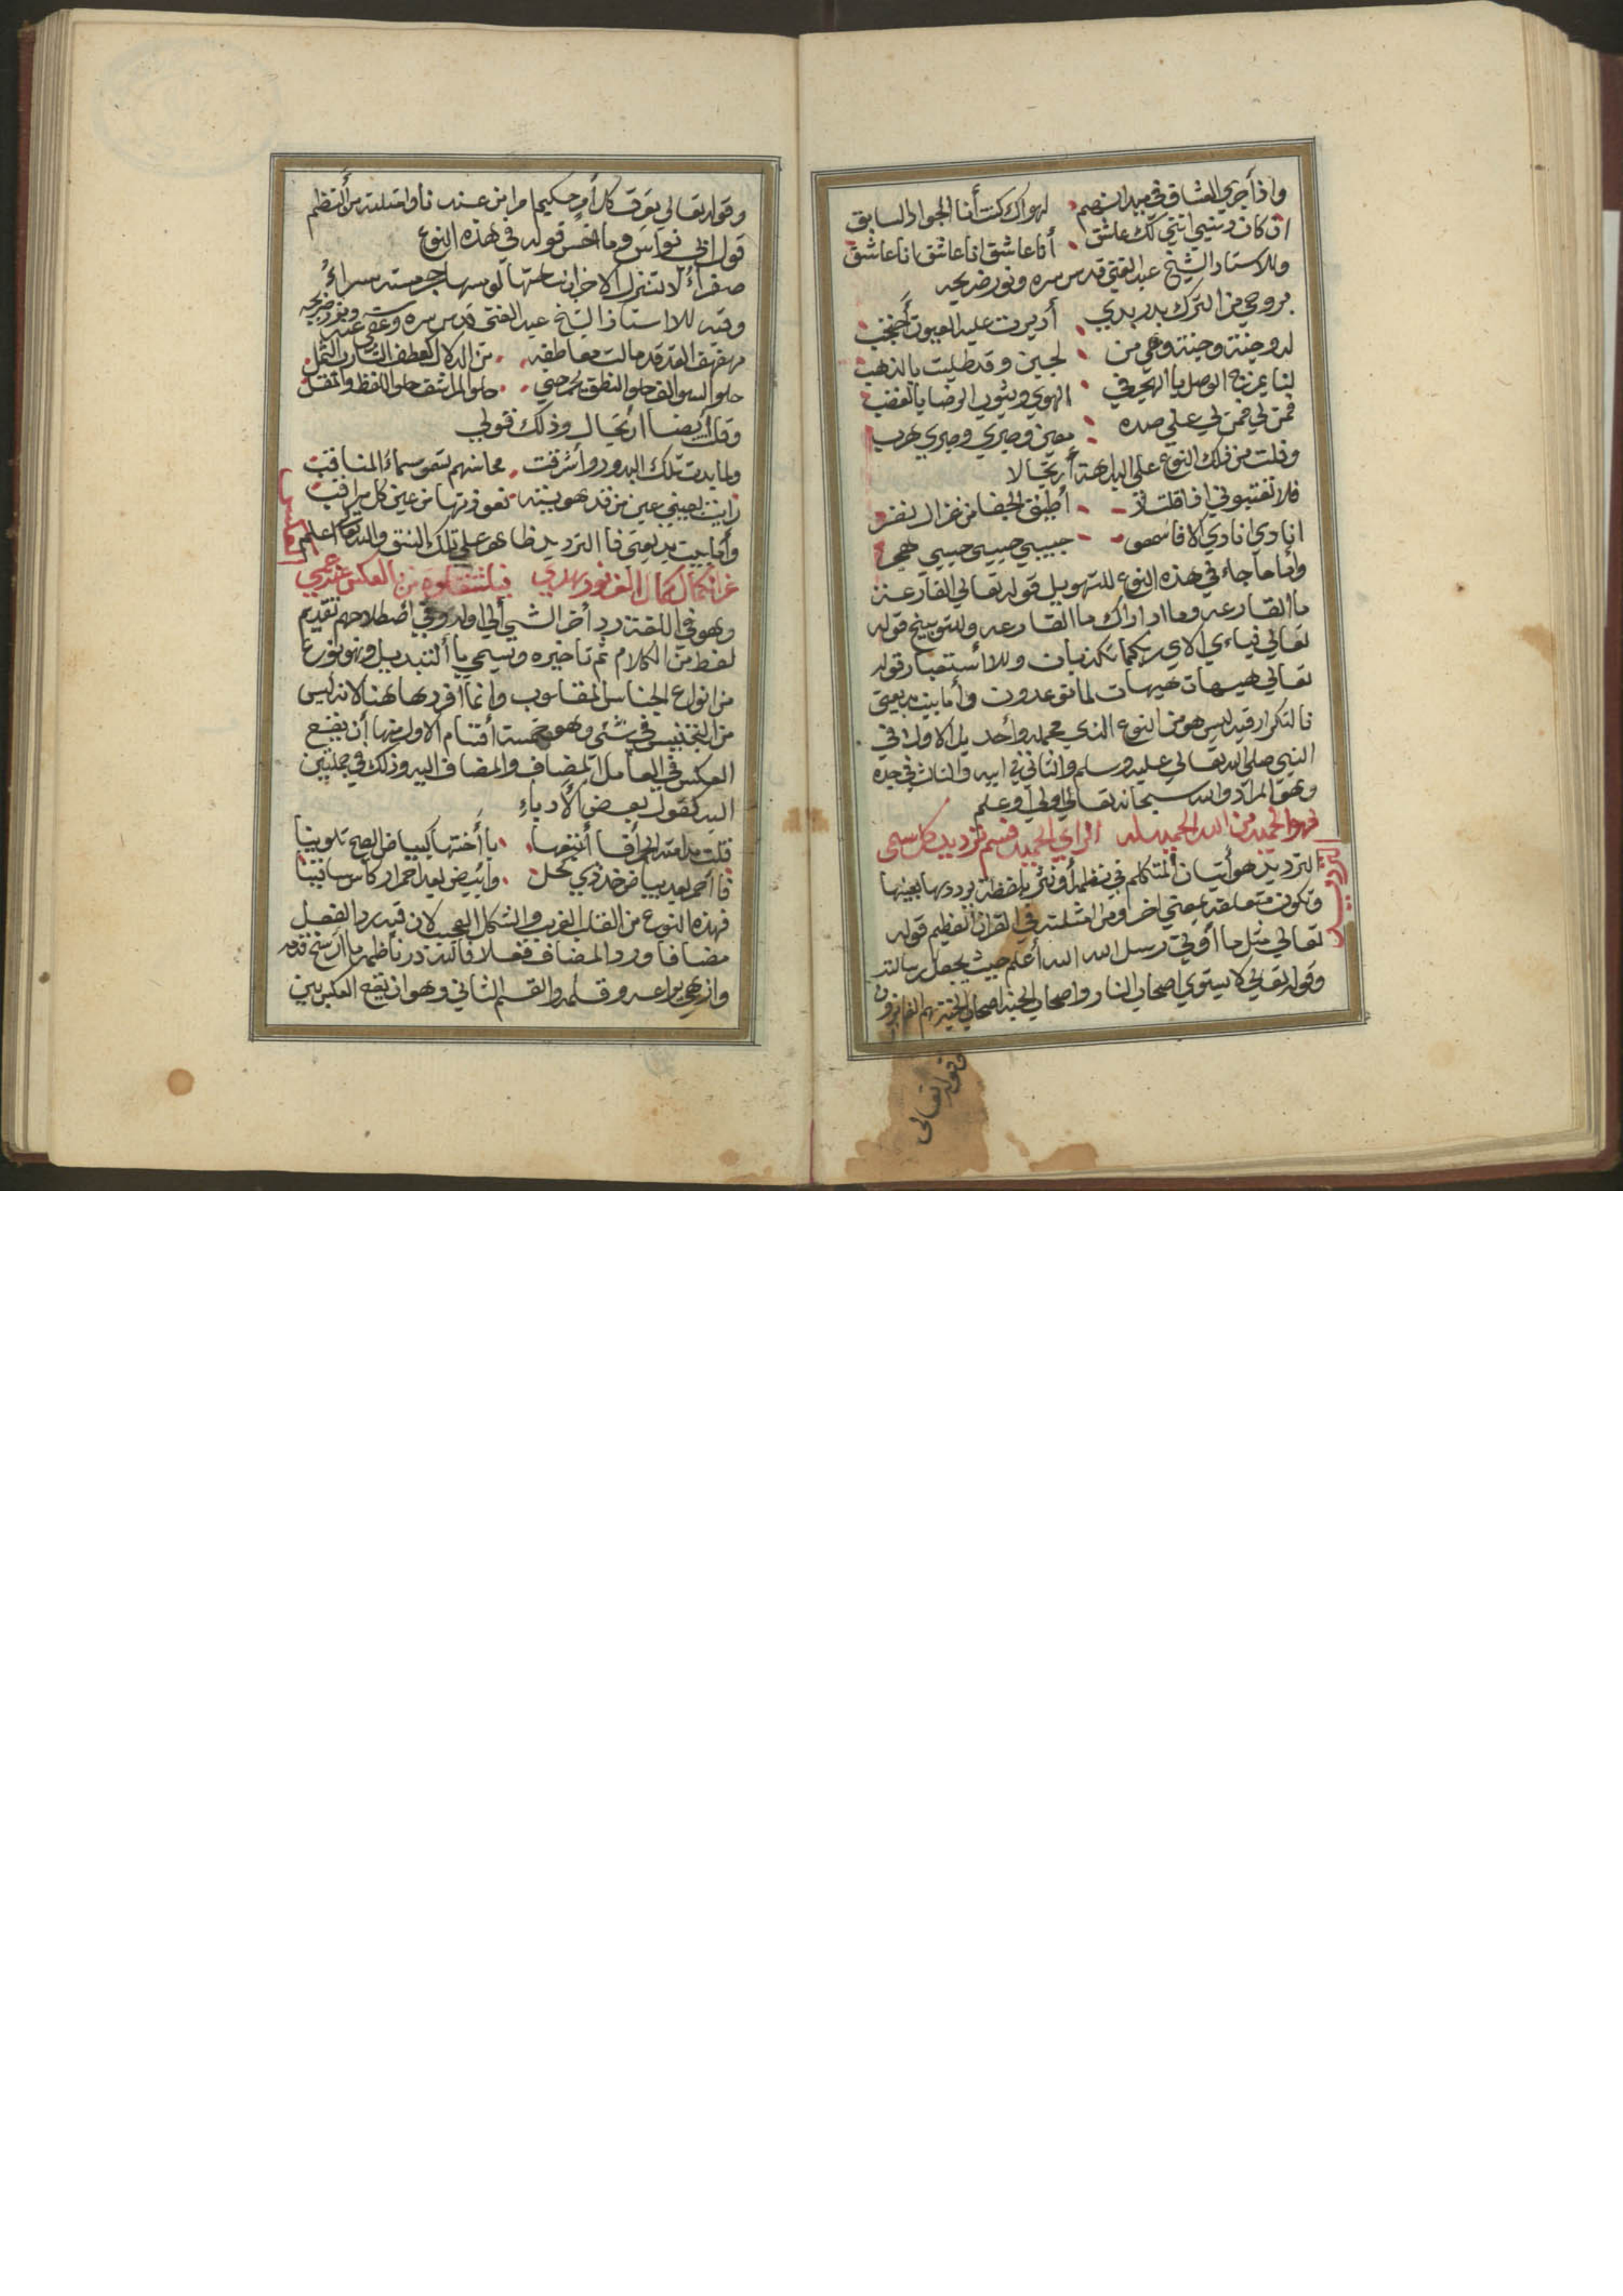 واذا أجري العشاق في ميدانهم لهواك كنت أنا الجواد السابق
ان كان ديني انني لك عاشق أنا عاشق انا عاشق انا عاشق
وللاستاد الشيخ عبد الغني قدس سره ونور ضريحه
بروحي من الترك بدر بدي أديرت عليه العيون
له وجنة وجنة وهي من لجين وقد طليت بالذهب
لنا يمزج الوصل بالهجر في الهوي ويشوب الرضا بالغضب
فمن لي فمن لي علي صده معين وصبري وصبري هرب
وقلت من ذلك النوع علي البداهة أرتجالا
فلا تعتبوني اذا قلت أطيق الجفا من غزال نفر
انادي انادي الا فاسمعو حبيبي حبيبي حبيبي هجر
وأما ما جاء في هذه النوع للتهويل قوله تعالي القارعة
ما القارعه وما ادراك ما القارعه وللتوبيخ قوله
تعالي فباءي الاي ربكما تكذبان وللأستبعاد قوله
تعالي هيهات هيهات لما توعدون وأما بيت بديعيتي
فالتكرار فيه ليس هو من النوع الذي محمله وأحد بل الاول في
النبي صلي الله تعالي عليه وسلم والثاني في ابيه والثالث في جده
وهو المراد والله سبحانه تعالي أولي وعلم
فهو الحميد من الله الحميد له الراي الحميد فسم ترديد كل سمي
الترديد
الترديد هو أتيان المتكلم في نظم أو نثر بلفظة يرددها بعينها
وتكون متعلقة بمعني اخر ومن امثلته في القران العظيم قوله
تعالي مثل ما أوتي رسل الله الله أعلم حيث يجعل رسالته
وقوله تعالي لا يستوي اصحاب النار واصحاب الجنة اصحاب الجنة هم الفائزون
وقوله تعالي
وقوله تعالي يفرق كل أمر حكيم امرا من عندنا وامثلته من النظم
قول ابي نواس وما احسن قوله في هذه النوع
صفراء لا تنزل الاحزان ساحتها لو مسها حجر مسته سراء
وقته للاستاذ الشيخ عبد الغني قدس سره وعفي عنه ونور ضريحه
مهفهف القد قد مالت معاطفه من الدلال كعطف الشارب الثمل
حلو السوالف حلو النطق حلو المراشف حلو اللفظ والمقل
وقلت أيضا ارتجال وذلك قولي
ولما بدت تلك البدور وأشرقت محاسنهم سماء المناقب
رايت بعيني عين من قد هويته تعوذتها من عين كل مراقب
وأما بيت بديعيتي فاالترديد ظاهر علي تلك النسق والله تعالى اعلم
العكس
ن العكس
وهو في اللغة رد أخر الشي ألي اوله وفي اصطلاحهم تقديم
لفظ من الكلام ثم تاخيره وتسمي با ألتبديل وهو نوع
من انواع الجناس المقلوب وانما افردها هنا لانه ليس
من التجنيس في شئ وهو خمسة أقسام الاول منها أن يقع
العكس في العامل المضاف والمضاف اليه وذلك في جملتين
اليه كقول بعض الأدباء
فا أحمر بعد بياض خد ذي كحل وابيض بعد احمرار كاس ساقينا
فهذه النوع من القلب الغريب والشكل العجيب لان فيه رد الفعل
مضافا ورد المضاف فعلا فالله در ناظمه ما ارسخ قدمه
وازهي يراعه وقلمه والقسم الثاني وهو ان يقع العكس بين